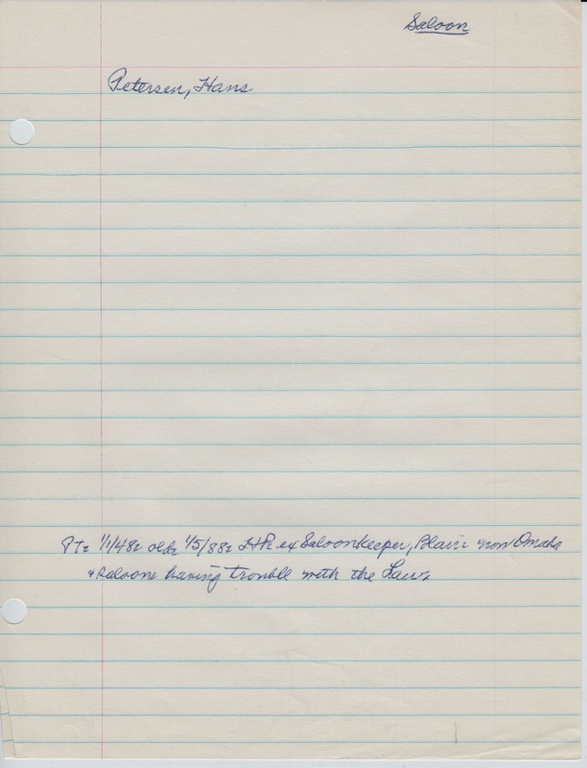 Saloon
Petersen, Hans
1/1/48: 1/5/88: ex Saloonkeeper, Blair: now Omaha
& saloons having trouble with the Law: